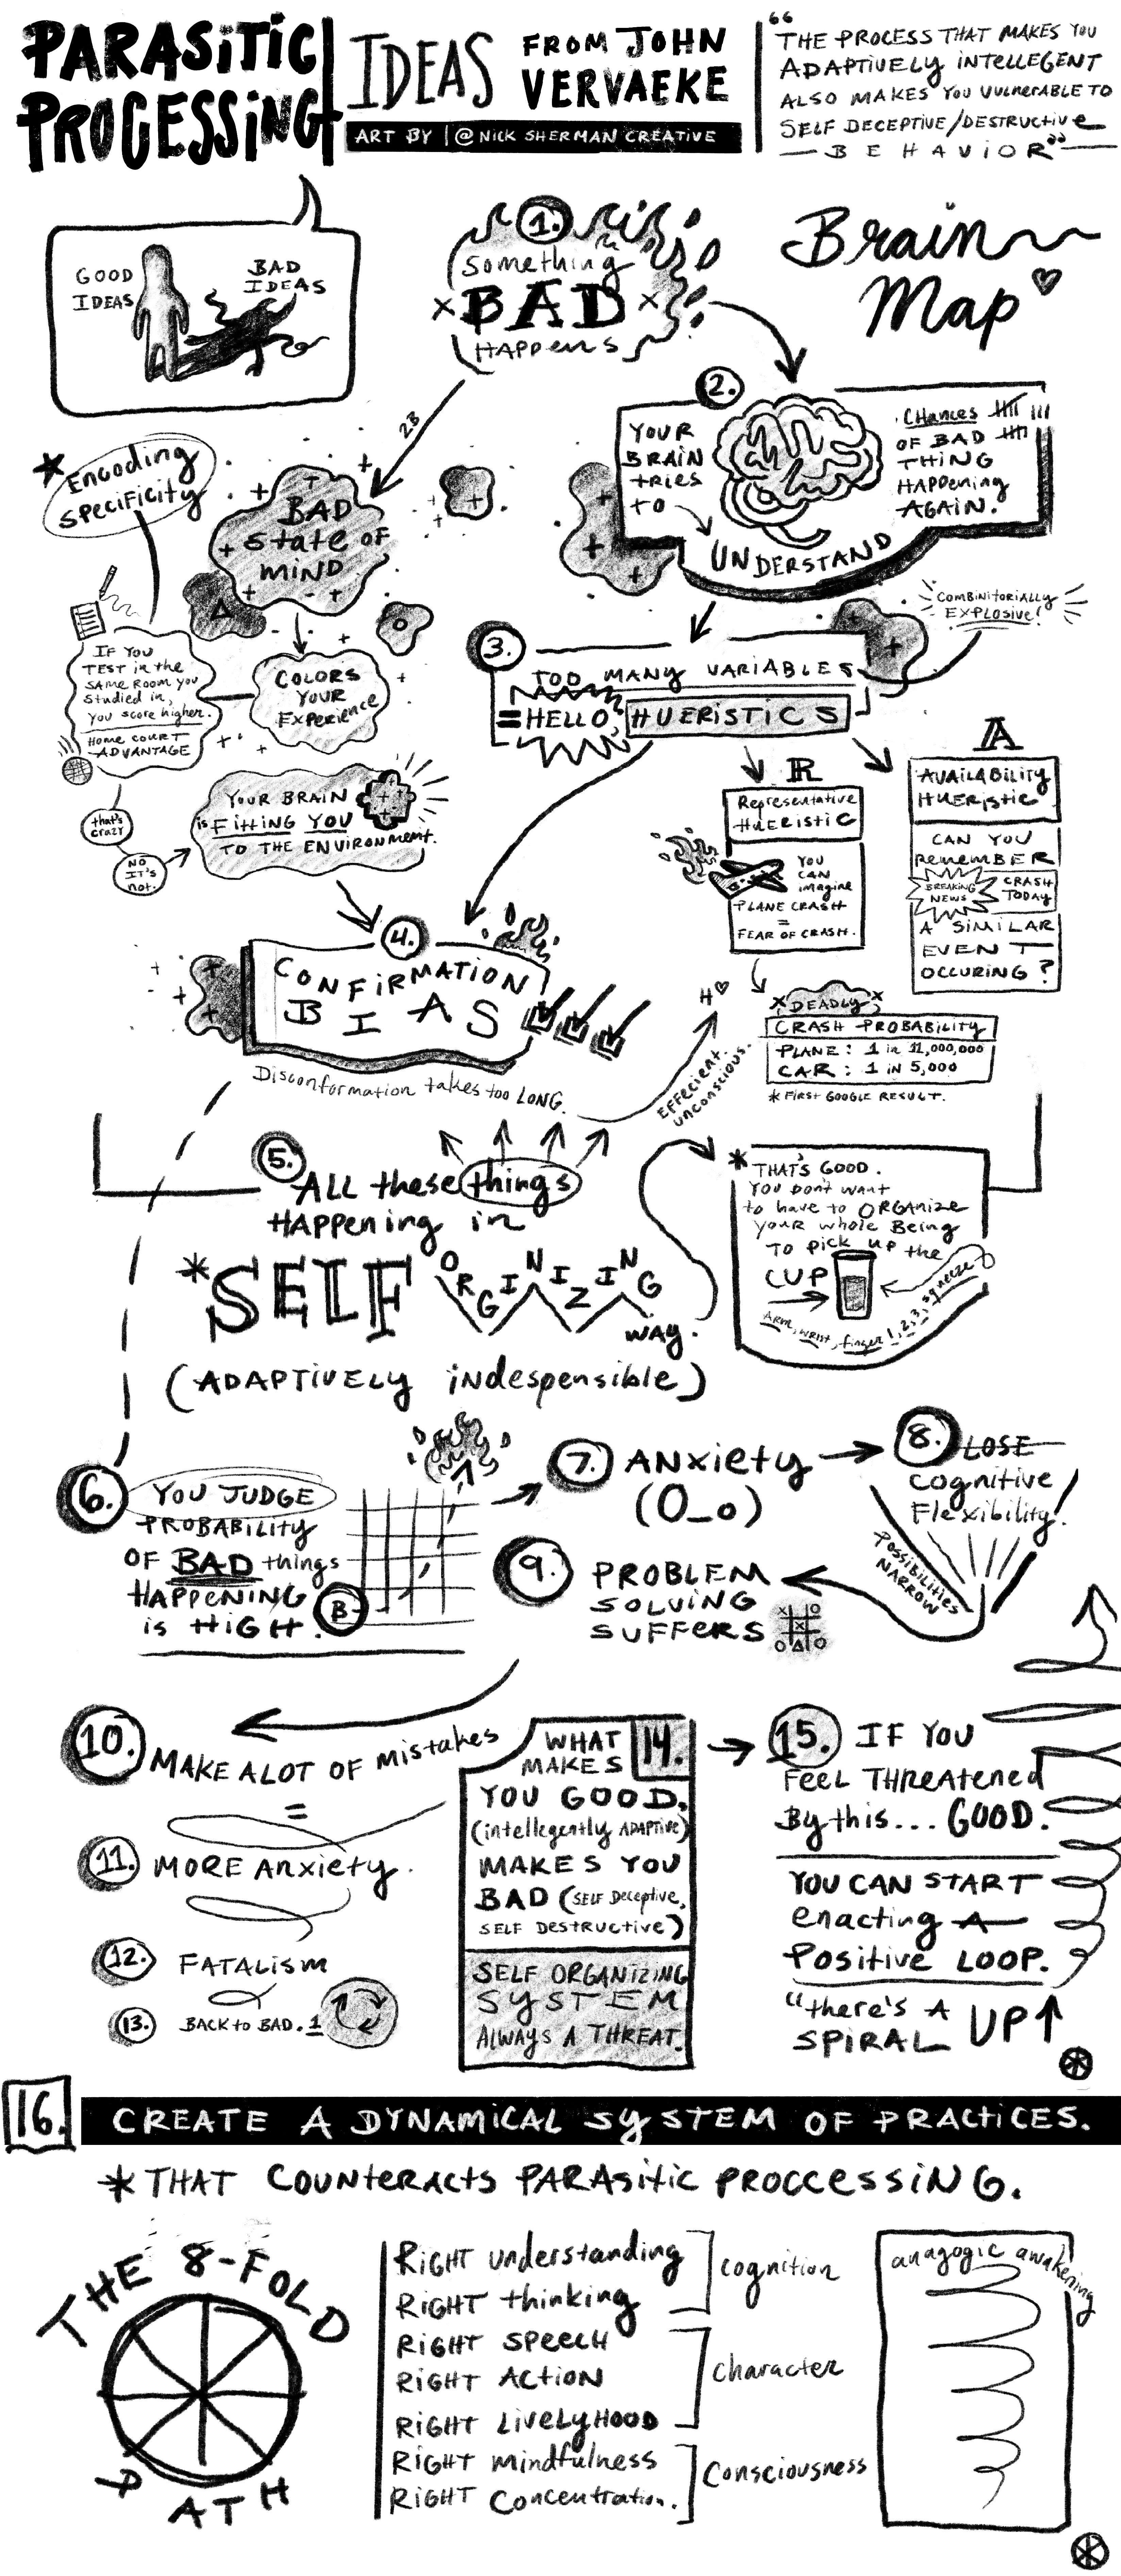 PARASITIC
PROCESSING
IDEAS
FROM JOHN
VERVAEKE
ART BY | @NICK SHERMAN CREATIVE
"THE PROCESS THAT MAKES YOU
ADAPTIVELY INTELLEGENT
ALSO MAKES YOU VULNERABLE TO
SELF DECEPTIVE/DESTRUCTIVE
BEHAVIOR"
GOOD
IDEAS
BAD
IDEAS
1.
Something
BAD
HAPPENS
Brain
Map
2.
YOUR
BRAIN
tries
to
UNDERSTAND
CHANCES
OF BAD
THING
HAPPENING
AGAIN.
2B
*Encoding
Specificity
BAD
State OF
MIND
COLORS
YOUR
Experience
IF YOU
TEST in the
SAME ROOM you
Studied in,
you score higher.
Home COURT
ADVANTAGE
that's
crazy
NO
IT's
not.
YOUR BRAIN
is FITTING YOU
TO THE ENVIRONMENT.
COMBINITORIALLY
EXPLOSIVE!
3.
TOO MANY VARIABLES
=HELLO, HUERISTICS
R
Representative
HUERISTIC
YOU
CAN
imagine
PLANE CRASH
=
FEAR OF CRASH.
A
AVAILABILITY
HUERISTIC
CAN YOU
REMEMBER
BREAKING
NEWS
CRASH
TODAY
A SIMILAR
EVENT
OCCURING?
DEADLY
CRASH PROBABILITY
PLANE: 1 in 11,000,000
CAR: 1 IN 5,000
*FIRST GOOGLE RESULT.
4.
CONFIRMATION
BIAS
Disconformation takes too LONG.
H
EFFECIENT.
unconscious.
5.
ALL these things
HAPPENING in
*SELF ORGINIZING
WAY.
(ADAPTIVELY indespensible)
*THAT'S GOOD.
YOU DON'T WANT
to have to ORGANIZE
YOUR whole Being
TO pick up the
CUP
Arm, wrist, finger 1,2,3, squeeze
6.
YOU JUDGE
PROBABILITY
OF BAD things
HAPPENING
is HIGH.
B
7. ANXIETY
(O_o)
8. LOSE
Cognitive
Flexibility!
Possibilities
NARROW
9. PROBLEM
SOLVING
SUFFERS
10. MAKE A LOT OF mistakes
=
11. MORE Anxiety.
12. FATALISM
13. BACK to BAD. 1
14.
WHAT
MAKES
YOU GOOD,
(intellegently ADAPTIVE)
MAKES YOU
BAD (SELF Deceptive,
SELF DESTRUCTIVE)
SELF ORGANIZING
SYSTEM
ALWAYS A THREAT.
15. IF YOU
FEEL THREATENED
By this... GOOD.
YOU CAN START
enacting A
Positive LOOP.
"there's A
SPIRAL UP↑
16.
CREATE A DYNAMICAL SYSTEM OF PRACTICES.
*THAT COUNTERACTS PARASITIC PROCCESSING.
THE 8-FOLD
PATH
RIGHT understanding
RIGHT thinking
RIGHT SPEECH
RIGHT ACTION
RIGHT LIVELYHOOD
RIGHT mindfulness
RIGHT Concentration.
cognition
Character
Consciousness
anagogic awakening